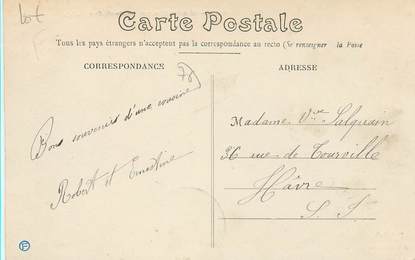 Lot
Carte Postale
Tous les pays étrangers n'acceptent pas la correspondance au recto (Se renseigner la Poste
CORRESPONDANCE
ADRESSE
Bons souvenirs d'une cousine
Robert et Ernestine
Madame Vve Salquain
36 rue de Tourville
Hâvre
S. I.
F